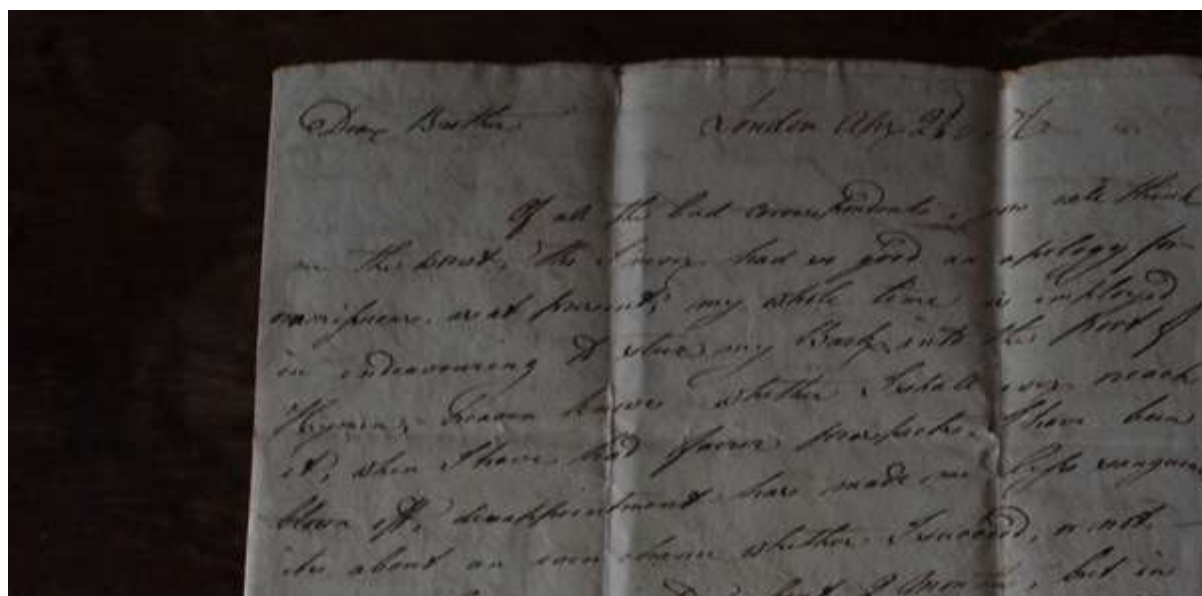 Dear Brother London
Of all the bad correspondents, you will think
me the worst, tho' I never had so good an apology for
remissness as at present, my whole time is employed
in endeavouring to steer my Bark into the Port of
Hymen, heaven knows whether I shall ever reach
it, when I have had fairer prospects I have been
blown off, disappointment have made me less sanguine
its about an even chance whether I succeed, or not,
but in